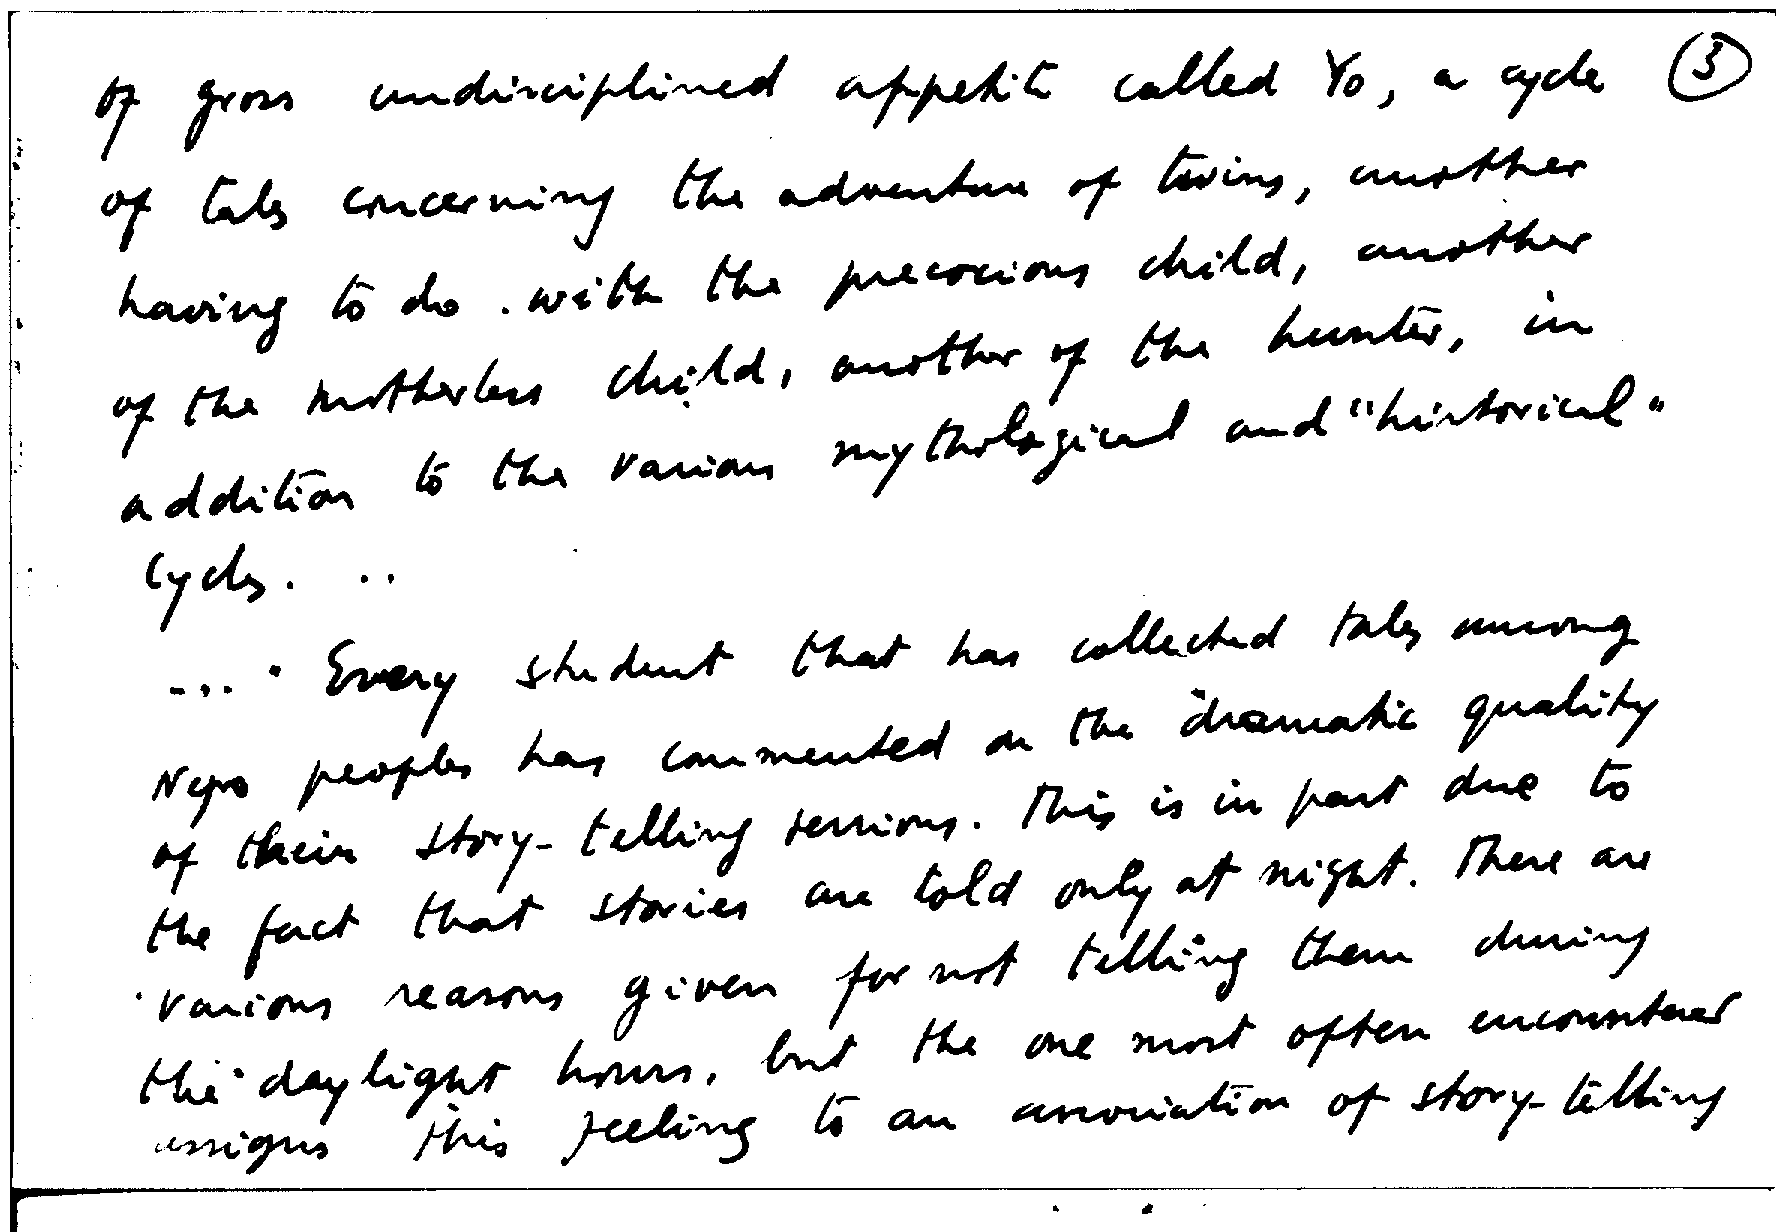 of gross undisciplined appetite called Yo, a cycle ③
of tales concerning the adventure of twins, another
having to do with the precocious child, another
of the motherless child, another of the hunter, in
addition to the various mythological and "historical"
cycles. ..
... "Every student that has collected tales among
Negro peoples has commented on the dramatic quality
of their story-telling sessions. This is in part due to
the fact that stories are told only at night. There are
various reasons given for not telling them during
the daylight hours, but the one most often encountered
assigns this feeling to an association of story-telling